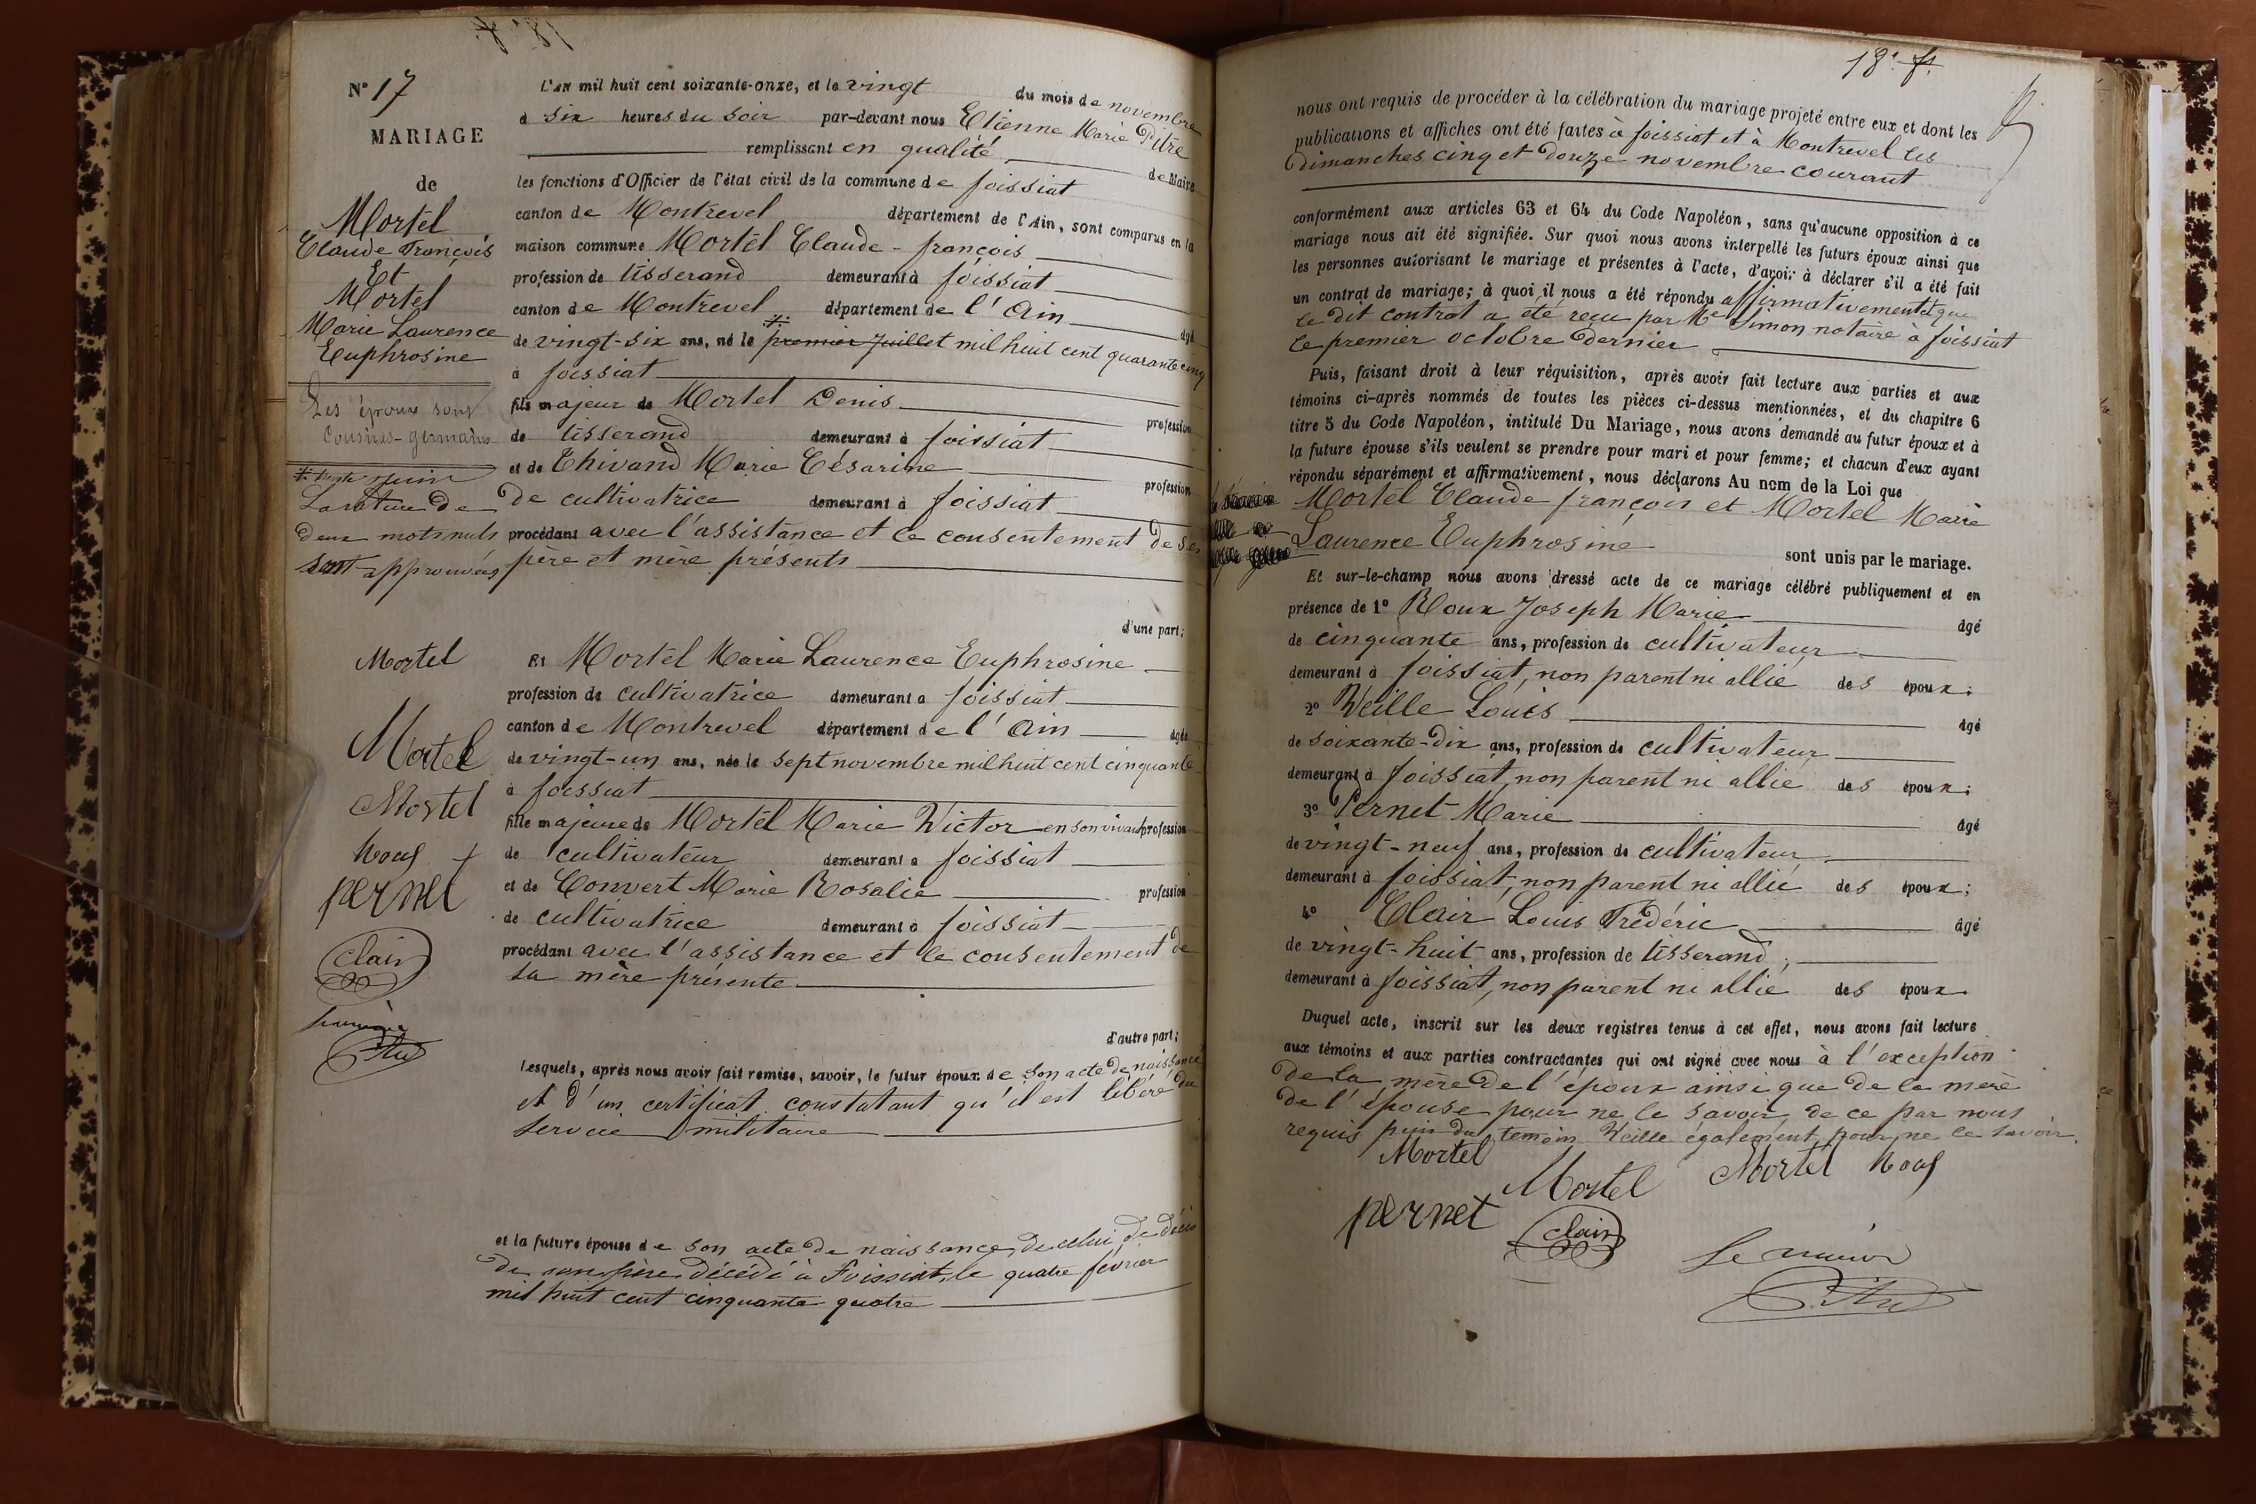 N° 17
MARIAGE
de
Mortel
Claude François
Et
Mortel
Marie Laurence
Euphrosine
Les époux sont
cousins-germains
* trente juin
La rature de
deux mots nuls
sont approuvés
Mortel
Mortel
Mortel
Pernet
Clair
L'AN mil huit cent soixante-onze, et le vingt du mois de novembre
à six heures du soir par-devant nous Etienne Marie Pitre
remplissant en qualité de Maire
les fonctions d'Officier de l'état civil de la commune de foissiat
canton de Montrevel département de l'Ain, sont comparus en la
maison commune Mortel Claude-françois
profession de tisserand demeurant à foissiat
canton de Montrevel département de l'Ain âgé
de vingt-six ans, né le * premier Juillet mil huit cent quarante cinq
à foissiat
fils majeur de Mortel Denis profession
de tisserand demeurant à foissiat
et de Thivand Marie Césarine profession
de cultivatrice demeurant à foissiat
procédant avec l'assistance et le consentement de ses
père et mère présents
d'une part;
Et Mortel Marie Laurence Euphrosine
profession de cultivatrice demeurant à foissiat
canton de Montrevel département de l'Ain âgée
de vingt-un ans, née le sept novembre mil huit cent cinquante
à foissiat
fille majeure de Mortel Marie Victor en son vivant profession
de cultivateur demeurant à foissiat
et de Convert Marie Rosalie profession
de cultivatrice demeurant à foissiat
procédant avec l'assistance et le consentement de
sa mère présente
d'autre part;
Lesquels, après nous avoir fait remise, savoir, le futur époux de son acte de naissance
et d'un certificat constatant qu'il est libéré du
service militaire
et la future épouse de son acte de naissance, de celui de décès
de son père décédé à Foissiat, le quatre février
mil huit cent cinquante quatre
18. f.
nous ont requis de procéder à la célébration du mariage projeté entre eux et dont les
publications et affiches ont été faites à foissiat et à Montrevel les
dimanches cinq et douze novembre courant
conformément aux articles 63 et 64 du Code Napoléon, sans qu'aucune opposition à ce
mariage nous ait été signifiée. Sur quoi nous avons interpellé les futurs époux ainsi que
les personnes autorisant le mariage et présentes à l'acte, d'avoir à déclarer s'il a été fait
un contrat de mariage; à quoi il nous a été répondu affirmativement et que
le dit contrat a été reçu par Me Simon notaire à foissiat
le premier octobre dernier
Puis, faisant droit à leur réquisition, après avoir fait lecture aux parties et aux
témoins ci-après nommés de toutes les pièces ci-dessus mentionnées, et du chapitre 6
titre 5 du Code Napoléon, intitulé Du Mariage, nous avons demandé au futur époux et à
la future épouse s'ils veulent se prendre pour mari et pour femme; et chacun d'eux ayant
répondu séparément et affirmativement, nous déclarons Au nom de la Loi que
Mortel Claude françois et Mortel Marie
Laurence Euphrosine
sont unis par le mariage.
Et sur-le-champ nous avons dressé acte de ce mariage célébré publiquement et en
présence de 1° Roux Joseph Marie âgé
de cinquante ans, profession de cultivateur
demeurant à foissiat, non parent ni allié des époux;
2° Veille Louis âgé
de soixante-dix ans, profession de cultivateur
demeurant à foissiat, non parent ni allié des époux;
3° Pernet Marie âgé
de vingt-neuf ans, profession de cultivateur
demeurant à foissiat, non parent ni allié des époux;
4° Clair Louis Frédéric âgé
de vingt-huit ans, profession de tisserand,
demeurant à foissiat, non parent ni allié des époux.
Duquel acte, inscrit sur les deux registres tenus à cet effet, nous avons fait lecture
aux témoins et aux parties contractantes qui ont signé avec nous à l'exception
de la mère de l'époux ainsi que de la mère
de l'épouse pour ne le savoir, de ce par nous
requis puis du témoin Veille également pour ne le savoir.
Mortel
Mortel
Mortel
Pernet
Clair
Le maire
Pitre